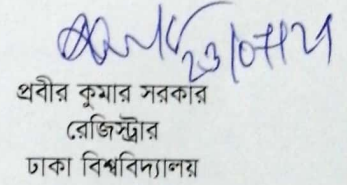 প্রবীর কুমার সরকার
রেজিস্ট্রার
ঢাকা বিশ্ববিদ্যালয়